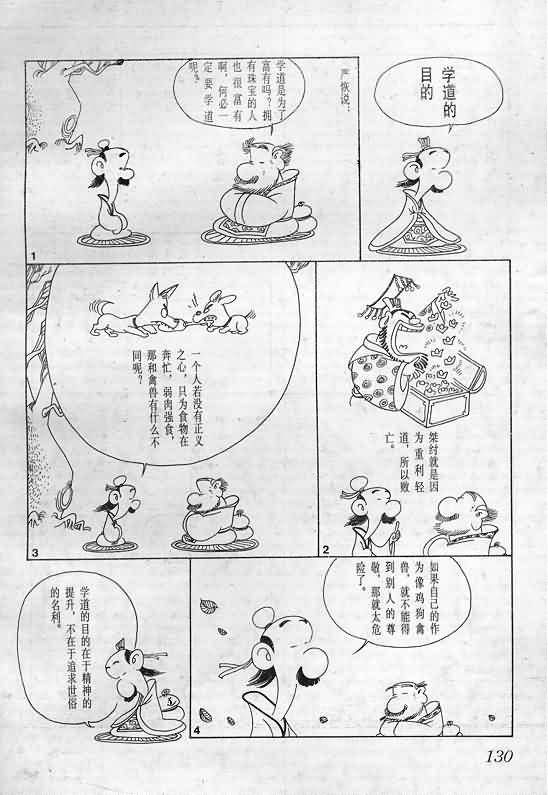 学道的
目的
严恢说：
学道是为了
富有吗？拥
有珠宝的人
也很富有
啊，何必一
定要学道
呢？
1
桀纣就是因
为重利轻
道，所以败
亡。
2
一个人若没有正义
之心，只为食物在
奔忙，弱肉强食，
那和禽兽有什么不
同呢？
3
如果自己的作
为像鸡狗禽
兽，就不能得
到别人的尊
敬，那就太危
险了。
4
学道的目的在于精神的
提升，不在于追求世俗
的名利。
130